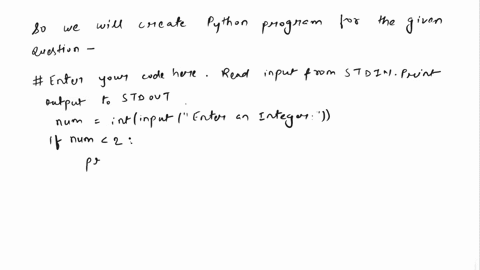 So we will create Python program for the given
question -
# Enter your code here. Read input from STDIN. Print
output to STDOUT
num = int(input("Enter an Integer:"))
If num < 2:
pr